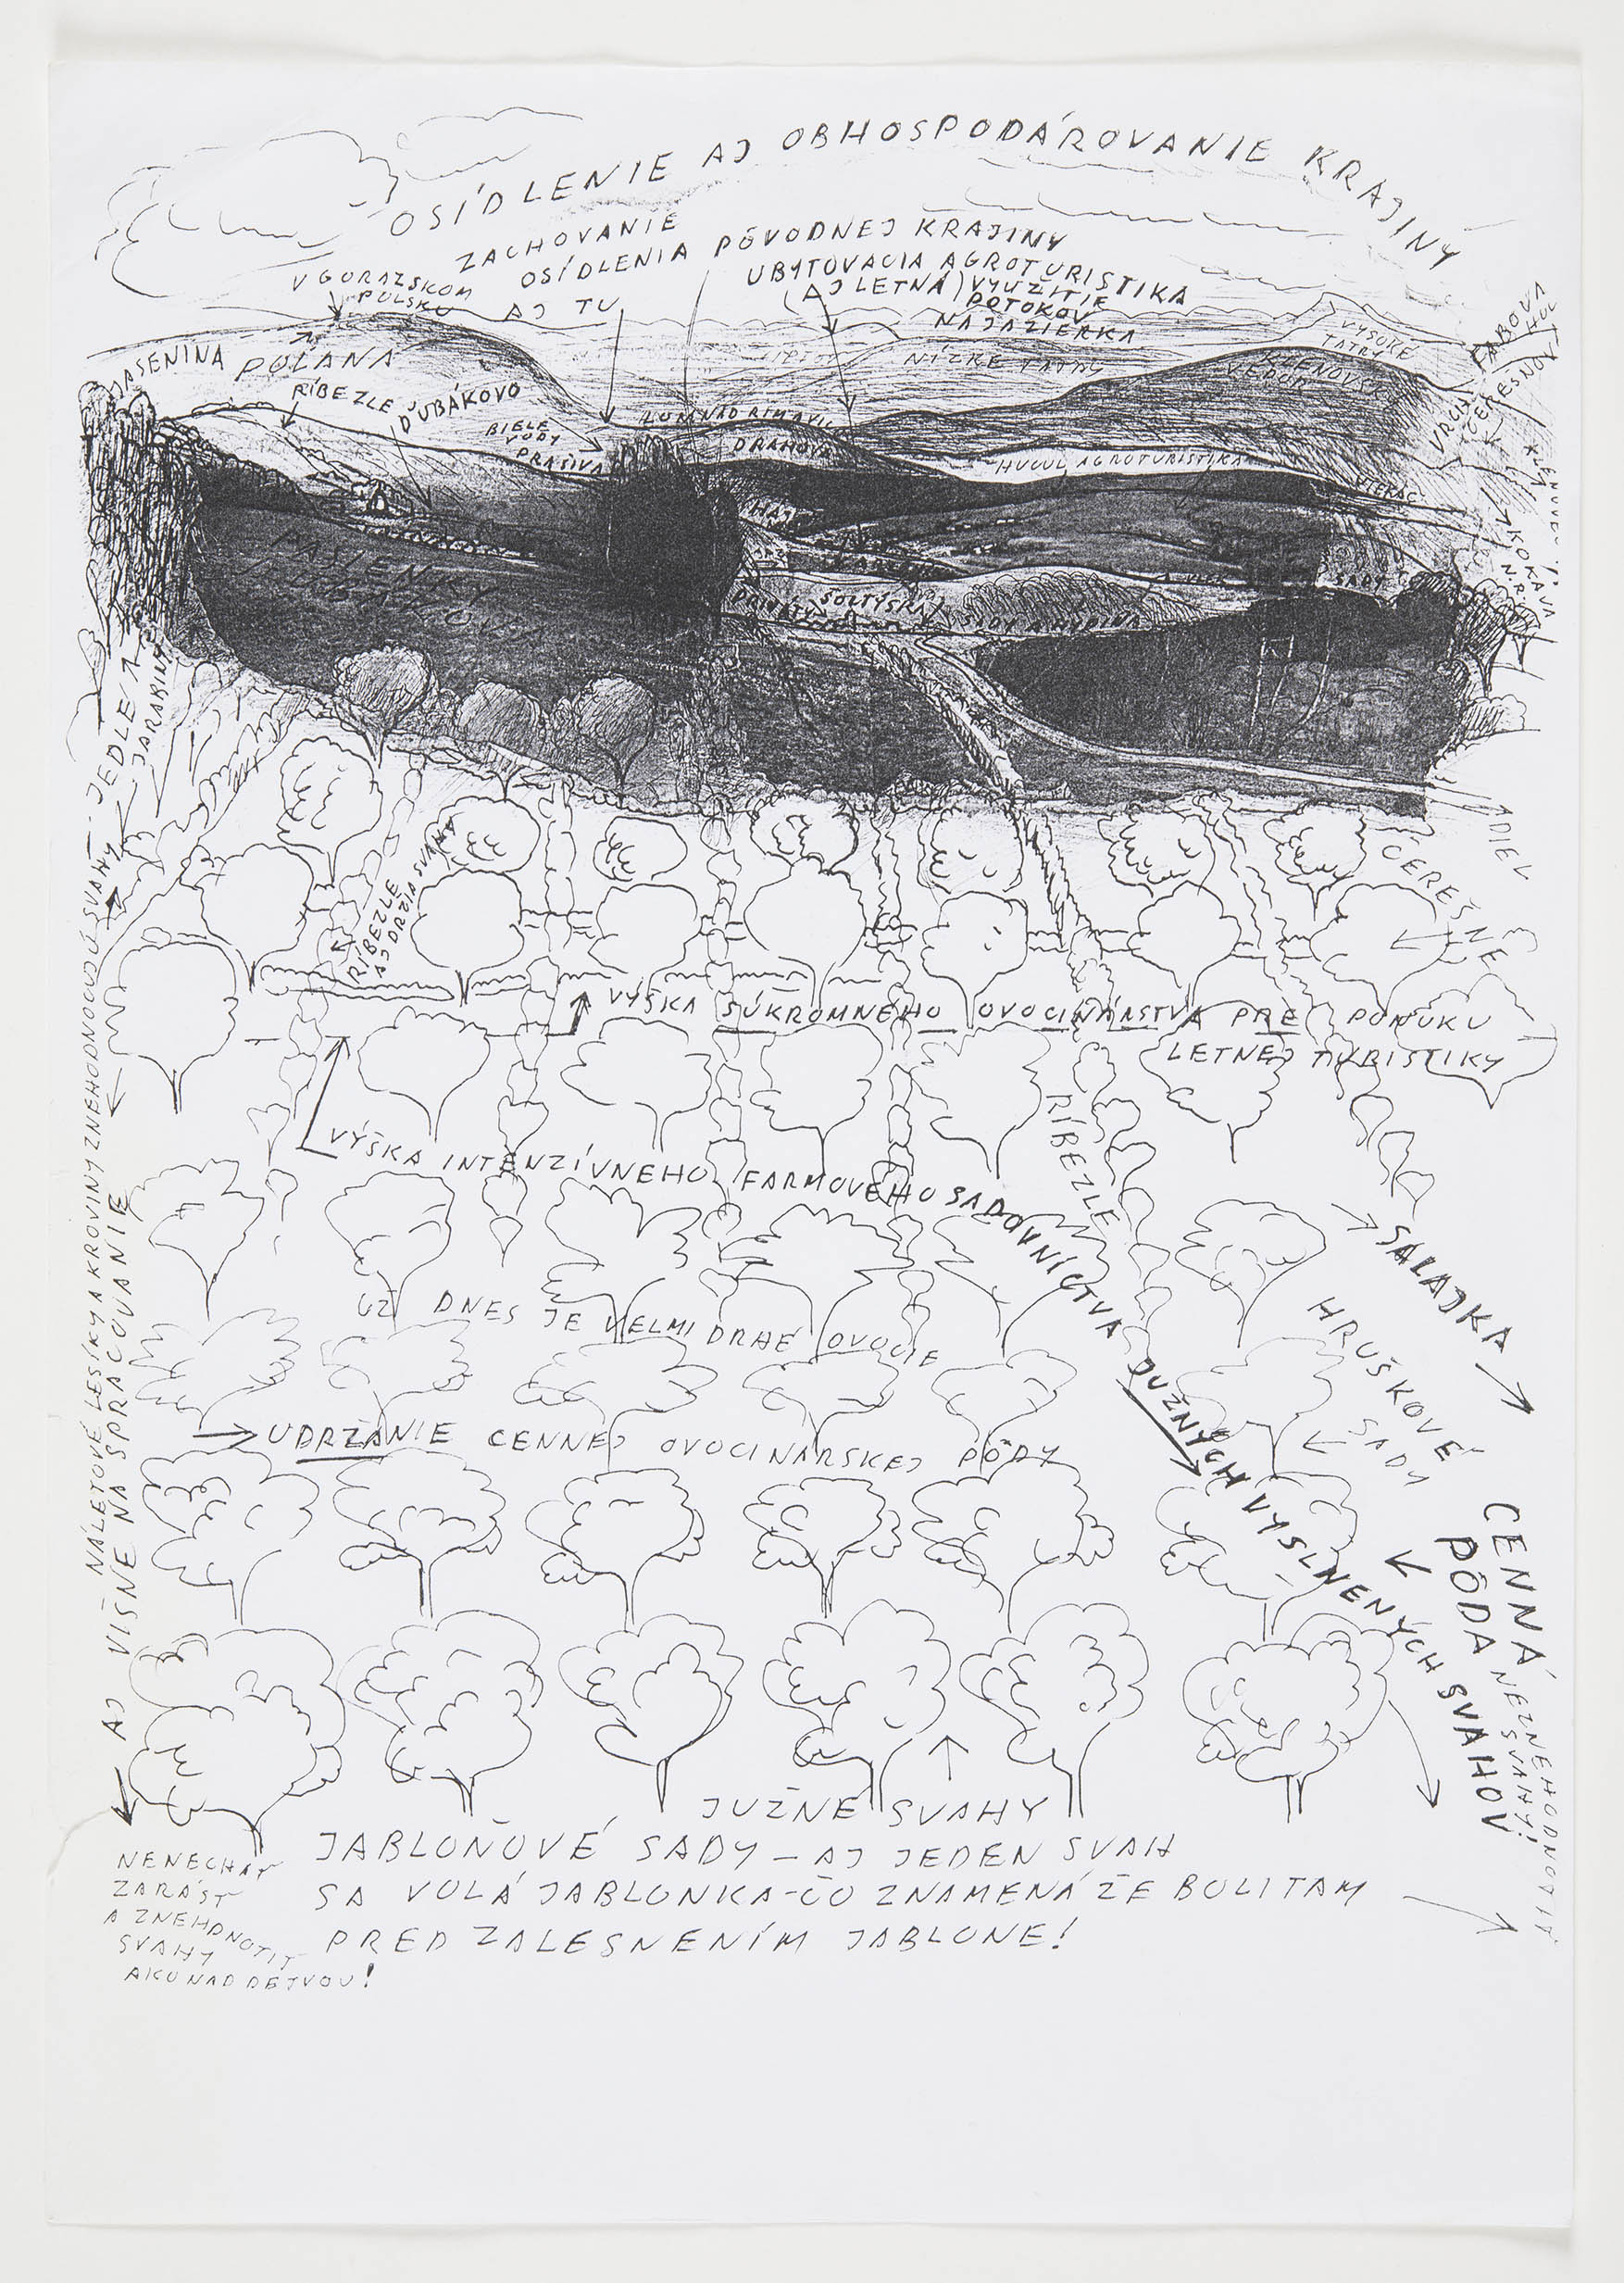 OSÍDLENIE AJ OBHOSPODÁROVANIE KRAJINY
ZACHOVANIE
OSÍDLENIA PÔVODNEJ KRAJINY
V GORAZSKOM
POLSKU
AJ TU
UBYTOVACIA AGROTURISTIKA
(AJ LETNÁ) VYUŽITIE
POTOKOV
NA JAZIERKA
VYSOKÉ
TATRY
NÍZKE TATRY
JASENINA
POLANA
RÍBEZLE
ĎUBÁKOVO
BIELE
VODY
PRAŠIVÁ
DRAHOVÁ
HUCUL AGROTURISTIKA
HÁJ
PASIENKY
ŠOLTÝSKA
KOKAVA
N.R.
JEDLE
JARABINY
RÍBEZLE
AJ DRŽIA SVAHA
ČEREŠNE
VÝŠKA SÚKROMNÉHO OVOCINÁRSTVA PRE PONUKU
LETNEJ TURISTIKY
VÝŠKA INTENZÍVNEHO FARMOVÉHO SADOVNÍCTVA JUŽNÝCH VYSLNENÝCH SVAHOV
RÍBEZLE
SALAJKA
HRUŠKOVÉ
SADY
UŽ DNES JE VELMI DRHÉ OVOCIE
UDRŽANIE CENNEJ OVOCINÁRSKEJ PÔDY
CENNÁ
PÔDA
NEZNEHODNOTIŤ
SVAHY!
NÁLETOVÉ LESÍKY A KROVINY ZNEHODNOCUJÚ SVAHY
AJ VIŠNE NA SPRACOVANIE
JUŽNÉ SVAHY
JABLOŇOVÉ SADY – AJ JEDEN SVAH
SA VOLÁ JABLONKA - ČO ZNAMENÁ ŽE BOLI TAM
PRED ZALESNENÍM JABLONE!
NENECHAŤ
ZARÁSŤ
A ZNEHDNOTIŤ
SVAHY
AKO NAD DETVOU!